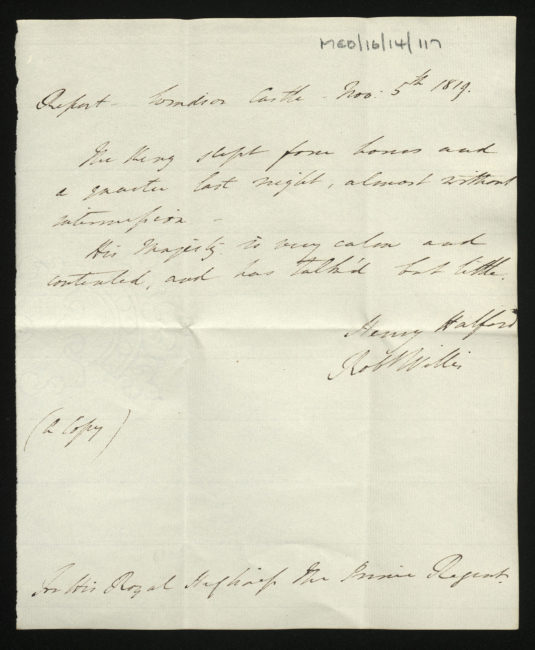 MED/16/14/117
Report - Windsor Castle - Nov: 5th 1819.
The King slept four hours and
a quarter last night, almost without
intermission -
His Majesty is very calm and
contented, and has talk'd but little.
Henry Halford
Robt Willis
(a Copy)
For His Royal Highness The Prince Regent.